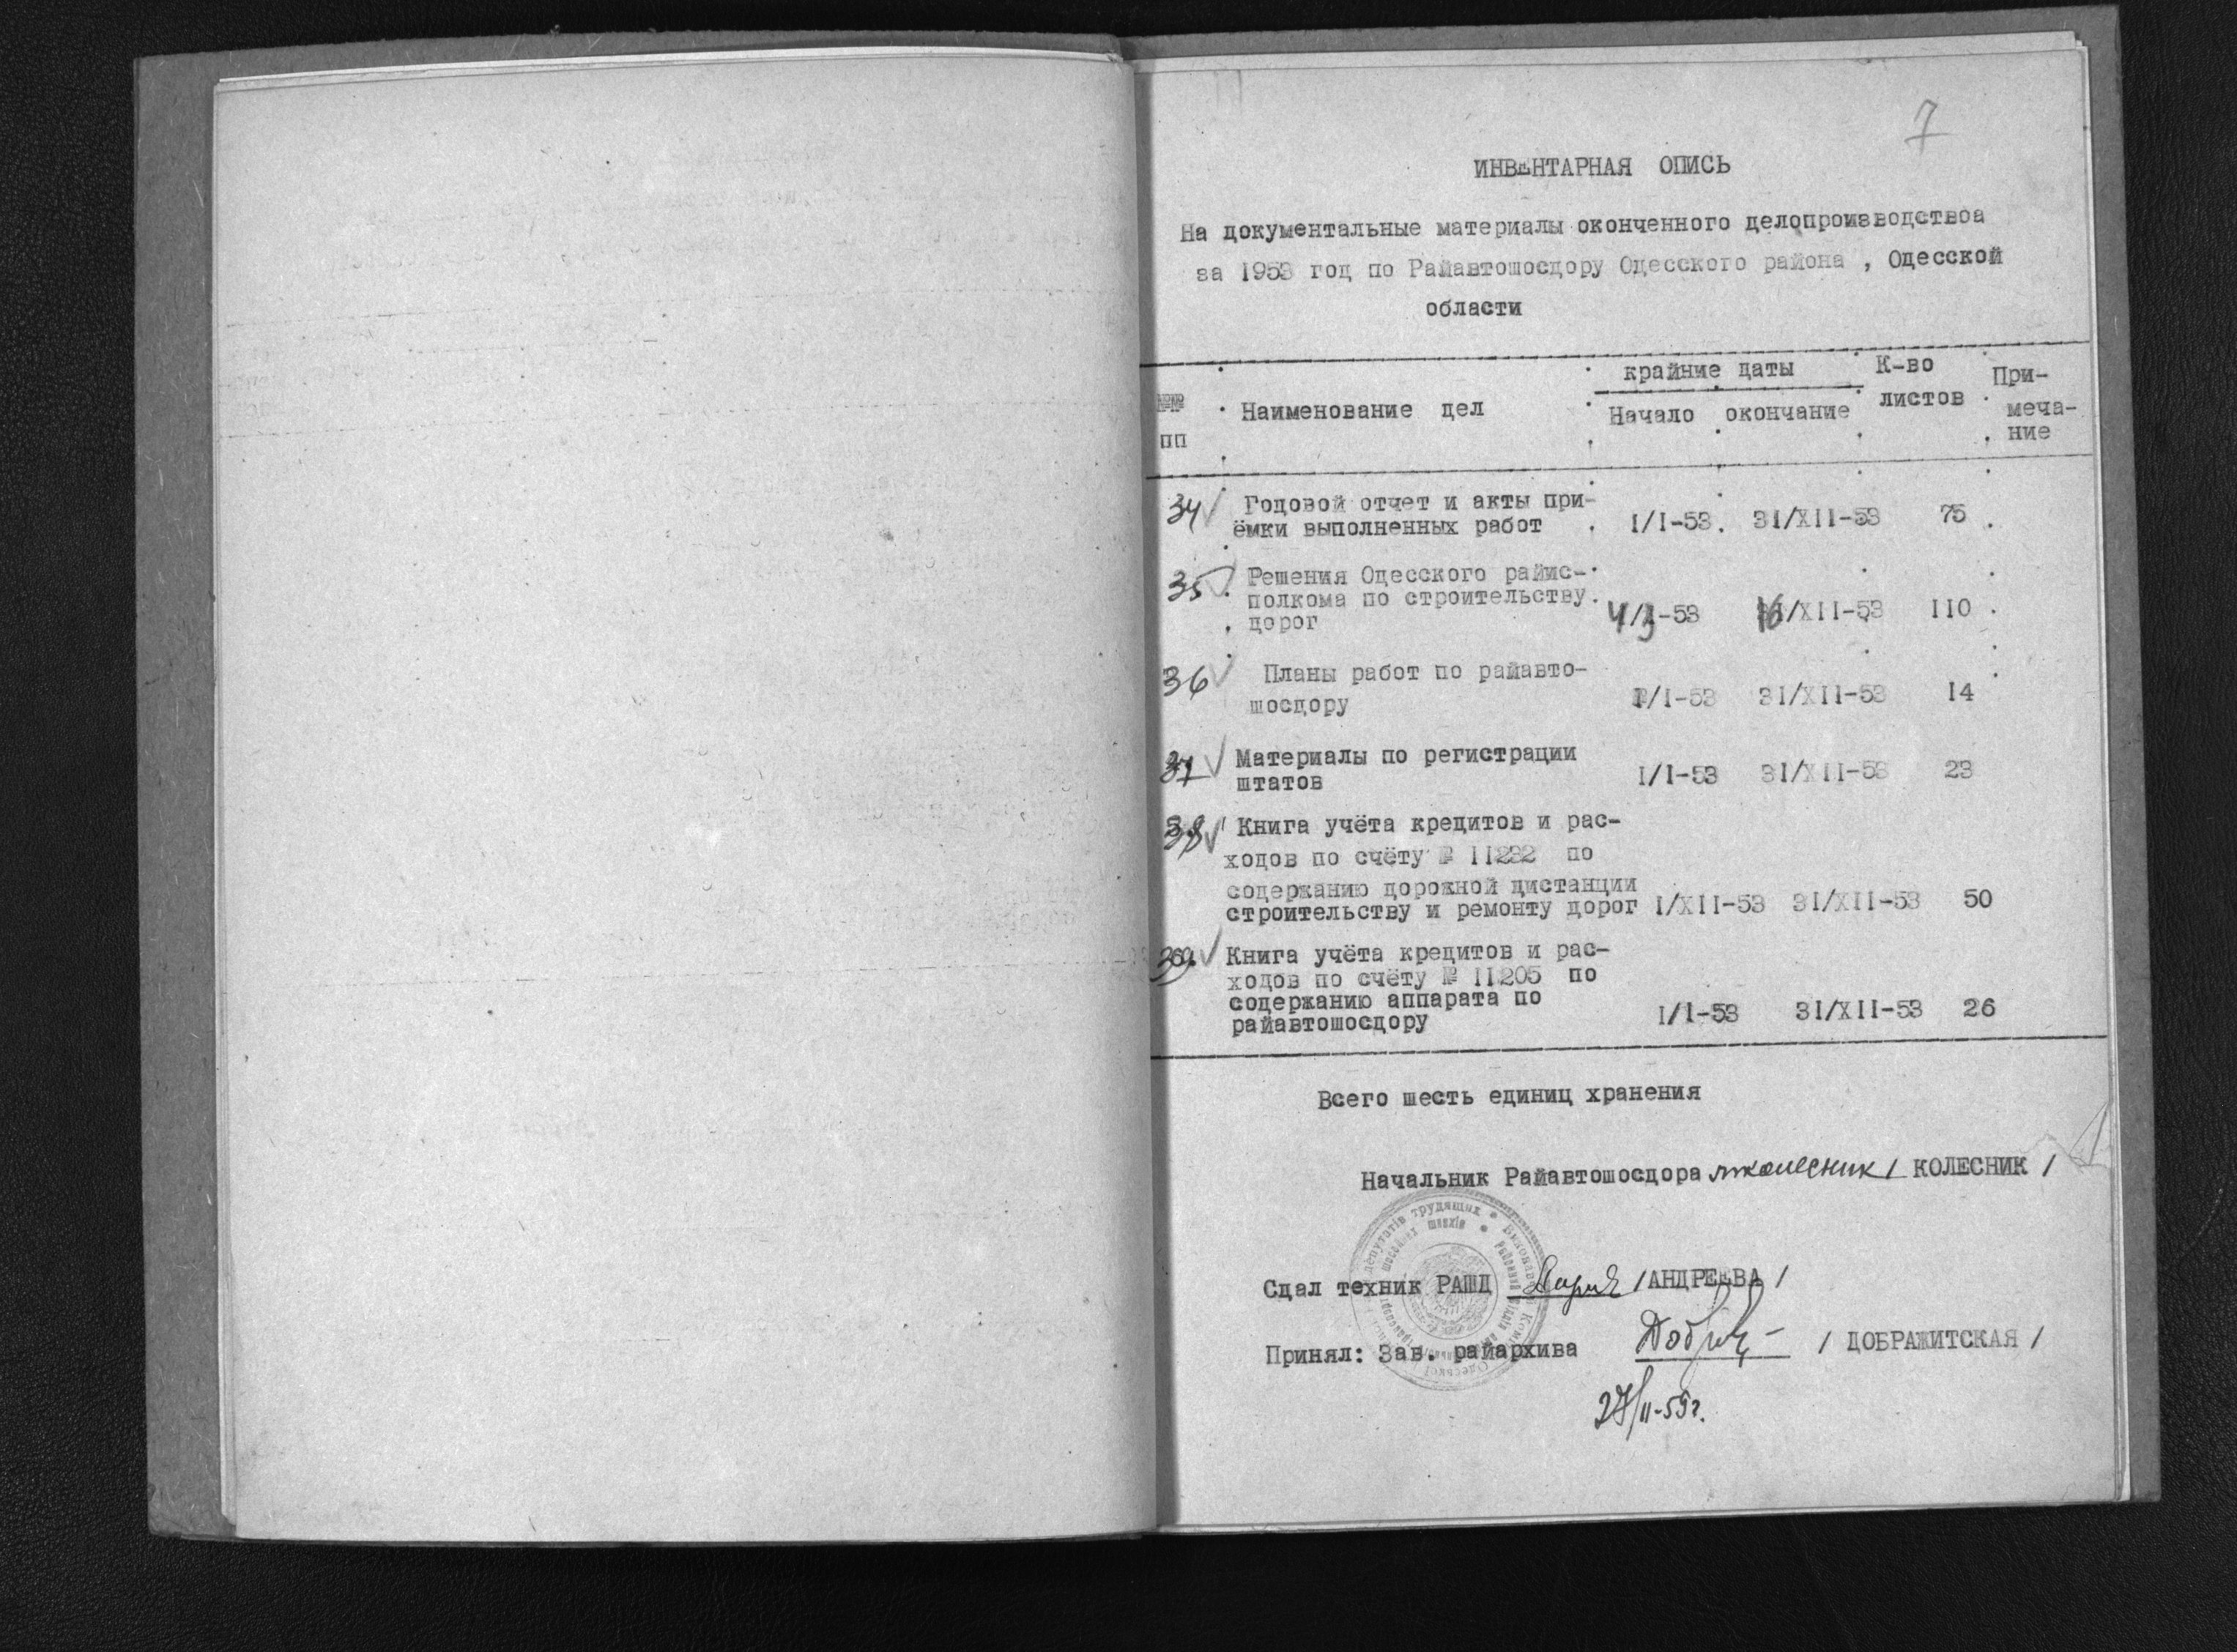 7
ИНВЕНТАРНАЯ ОПИСЬ
На документальные материалы оконченного делопроизводствоа
за 1953 год по Райавтошосдору Одесского района , Одесской
области
№№ пп
Наименование дел
крайние даты
Начало окончание
К-во листов
При-
меча-
ние
34 Годовой отчет и акты при-
ёмки выполненных работ I/I-53. 3I/XII-53 75
35 Решения Одесского райис-
полкома по строительству
дорог 4/3-53 16/XII-53 110
36 Планы работ по райавто-
шосдору I/I-53 3I/XII-53 I4
37 Материалы по регистрации
штатов I/I-53 3I/XII-53 23
38 Книга учёта кредитов и рас-
ходов по счёту № II232 по
содержанию дорожной дистанции
строительству и ремонту дорог I/XII-53 3I/XII-53 50
39 Книга учёта кредитов и рас-
ходов по счёту № II205 по
содержанию аппарата по
райавтошосдору I/I-53 3I/XII-53 26
Всего шесть единиц хранения
Начальник Райавтошосдора колесник / КОЛЕСНИК /
Сдал техник РАШД /АНДРЕЕВА /
Принял: Зав. райархива / ДОБРАЖИТСКАЯ /
27/II-55г.
депутатів трудящих
шосейних шляхів